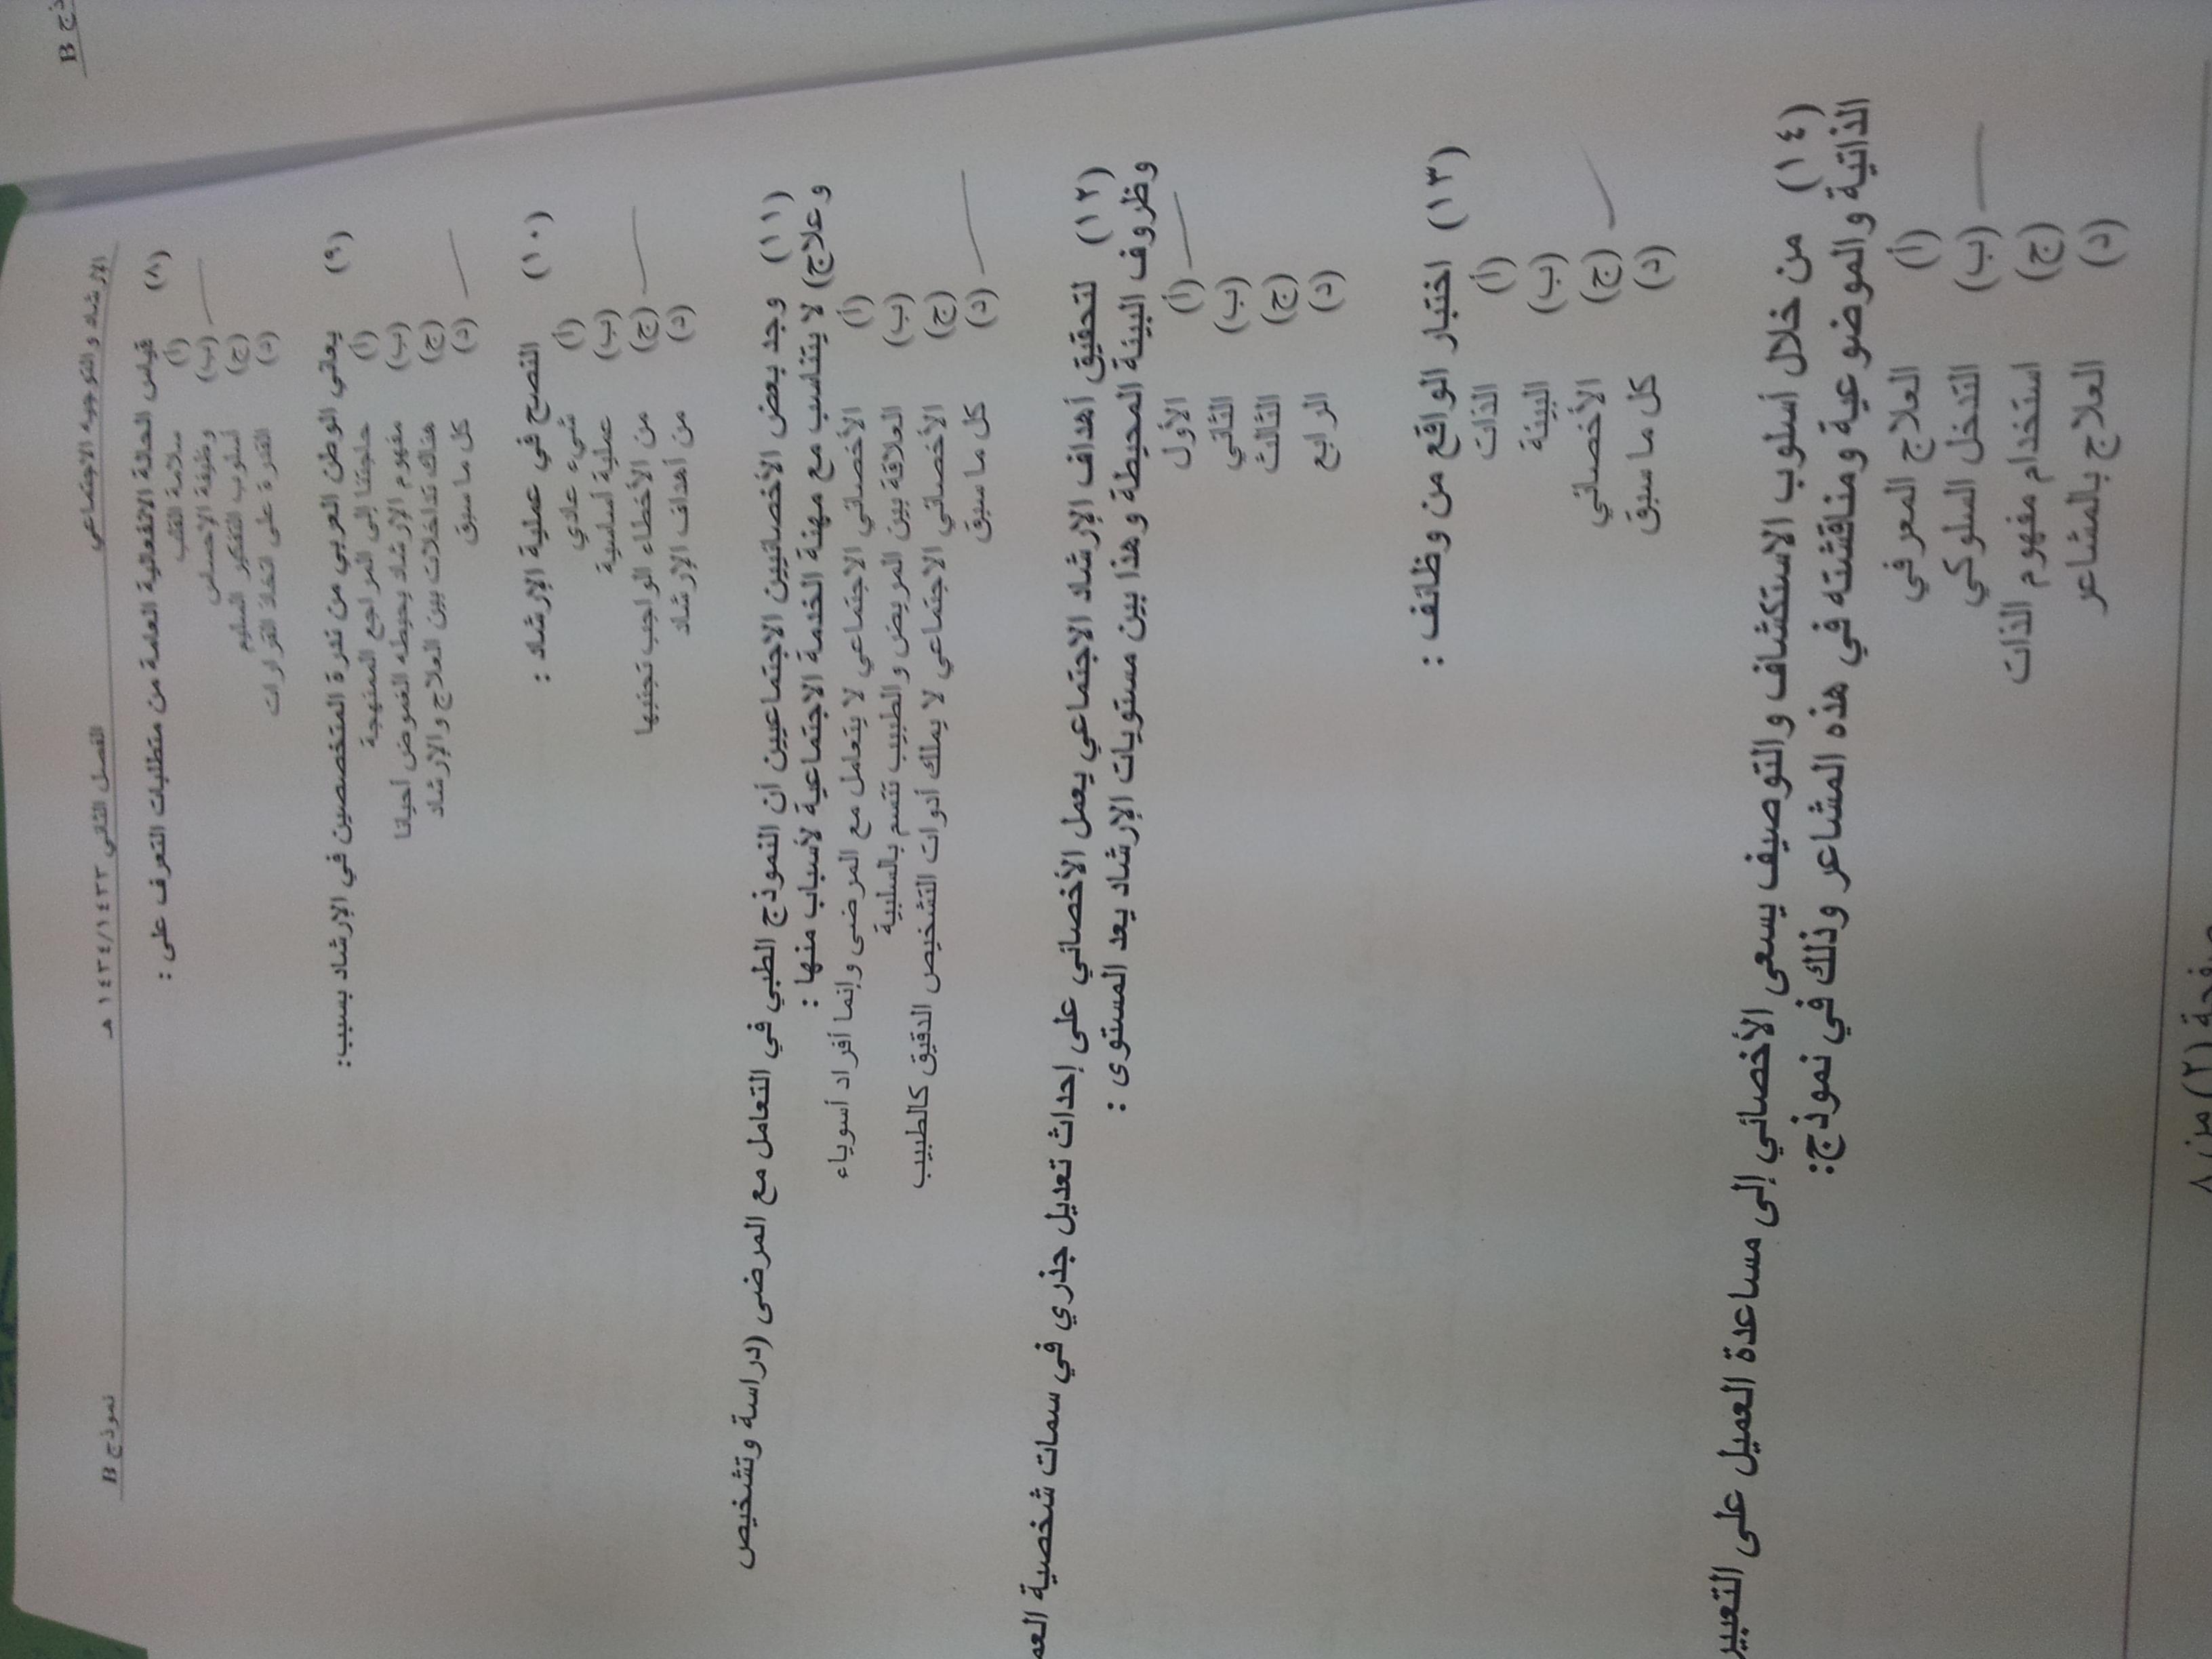 الإرشاد والتوجيه الاجتماعي الفصل الثاني ١٤٣٤/١٤٣٣ هـ نموذج B
(٨) قياس الحالة الانفعالية العامة من متطلبات التعرف على :
(أ) سلامة القلب
(ب) وظيفة الاحساس
(ج) أسلوب التفكير السليم
(د) القدرة على اتخاذ القرارات
(٩) يعاني الوطن العربي من ندرة المتخصصين في الإرشاد بسبب:
(أ) حاجتنا إلى المراجع المنهجية
(ب) مفهوم الإرشاد يحيطه الغموض أحيانا
(ج) هناك تداخلات بين العلاج والإرشاد
(د) كل ما سبق
(١٠) النصح في عملية الإرشاد :
(أ) شيء عادي
(ب) عملية أساسية
(ج) من الأخطاء الواجب تجنبها
(د) من أهداف الإرشاد
(١١) وجد بعض الأخصائيين الاجتماعيين أن النموذج الطبي في التعامل مع المرضى (دراسة وتشخيص
وعلاج) لا يتناسب مع مهنة الخدمة الاجتماعية لأسباب منها :
(أ) الأخصائي الاجتماعي لا يتعامل مع المرضى وإنما أفراد أسوياء
(ب) العلاقة بين المريض والطبيب تتسم بالسلبية
(ج) الأخصائي الاجتماعي لا يملك أدوات التشخيص الدقيق كالطبيب
(د) كل ما سبق
(١٢) لتحقيق أهداف الإرشاد الاجتماعي يعمل الأخصائي على إحداث تعديل جذري في سمات شخصية
وظروف البيئة المحيطة وهذا بين مستويات الإرشاد يعد المستوى :
(أ) الأول
(ب) الثاني
(ج) الثالث
(د) الرابع
(١٣) اختبار الواقع من وظائف :
(أ) الذات
(ب) البيئة
(ج) الأخصائي
(د) كل ما سبق
(١٤) من خلال أسلوب الاستكشاف والتوصيف يسعى الأخصائي إلى مساعدة العميل على التعبير
الذاتية والموضوعية ومناقشته في هذه المشاعر وذلك في نموذج:
(أ) العلاج المعرفي
(ب) التدخل السلوكي
(ج) استخدام مفهوم الذات
(د) العلاج بالمشاعر
صفحة (٢) من ٨